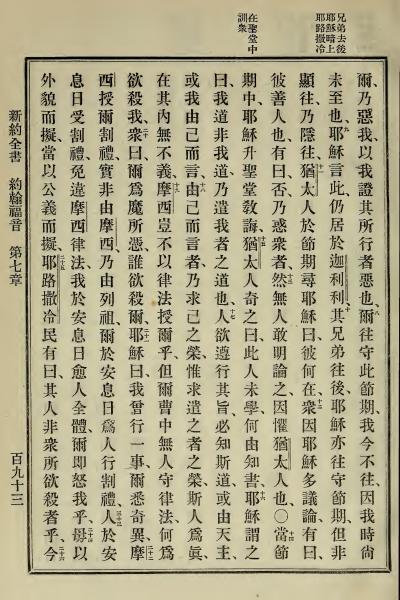 兄弟去後
耶穌暗上
耶路撒冷
在聖堂中
訓衆
爾、乃惡我、以我證其所行者惡也、爾往守此節期、我今不往、因我時尚
未至也、九耶穌言此、仍居於迦利利、十其兄弟往後、耶穌亦往守節期、但非
顯往、乃隱往、十一猶太人於節期尋耶穌曰、彼何在、十二衆因耶穌多議論、有曰、
彼善人也、有曰、否、乃惑衆者、十三然無人敢明論之、因懼猶太人也、〇十四當節
期中、耶穌升聖堂敎誨、十五猶太人奇之曰、此人未學、何由知書、十六耶穌謂之
曰、我道非我道、乃遣我者之道也、十七人欲遵行其旨、必知斯道或由天主、
或我由己而言、十八由己而言者、乃求己之榮、惟求遣之者之榮、斯人爲眞、
在其內無不義、十九摩西豈不以律法授爾乎、但爾曹中無人守律法、何爲
欲殺我、二十衆曰、爾爲魔所憑、誰欲殺爾、二十一耶穌曰、我曾行一事、爾悉奇異、二十二摩
西授爾割禮、實非由摩西、乃由列祖、爾於安息日爲人行割禮、二十三人於安
息日受割禮、免違摩西律法、我於安息日愈人全體、爾卽怒我乎、二十四毋以
外貌而擬、當以公義而擬、二十五耶路撒冷民有曰、其人非衆所欲殺者乎、二十六今
新約全書　約翰福音　第七章　百九十三